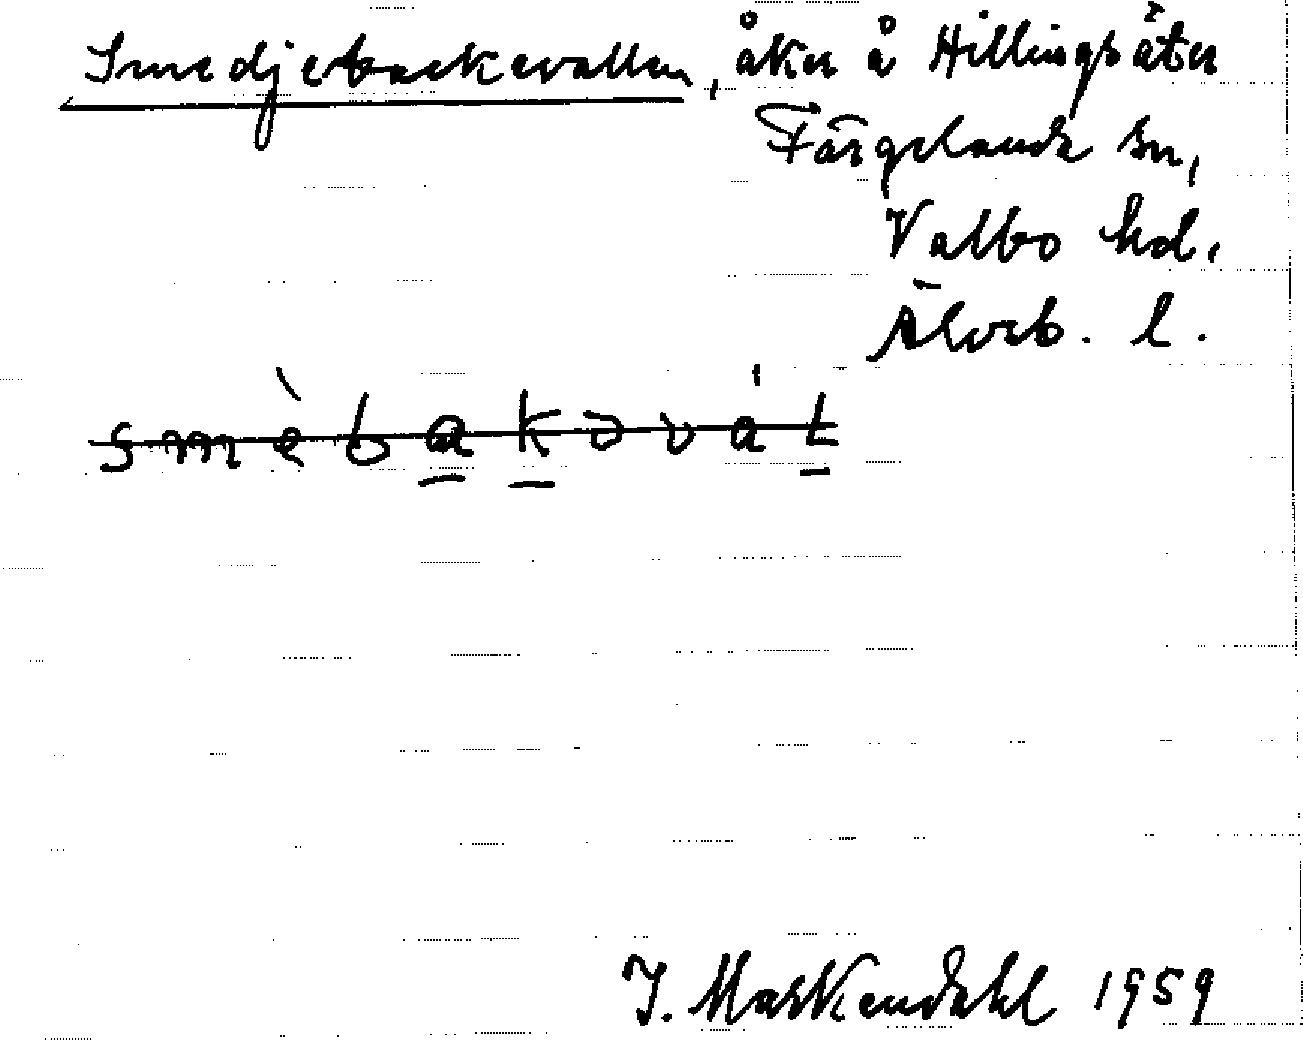 Smedjebackevallen, åker å Hillingsäter
Färgelanda sn,
Valbo hd.
Älvsb. l.
smèbakəvált
J. Markendahl 1959